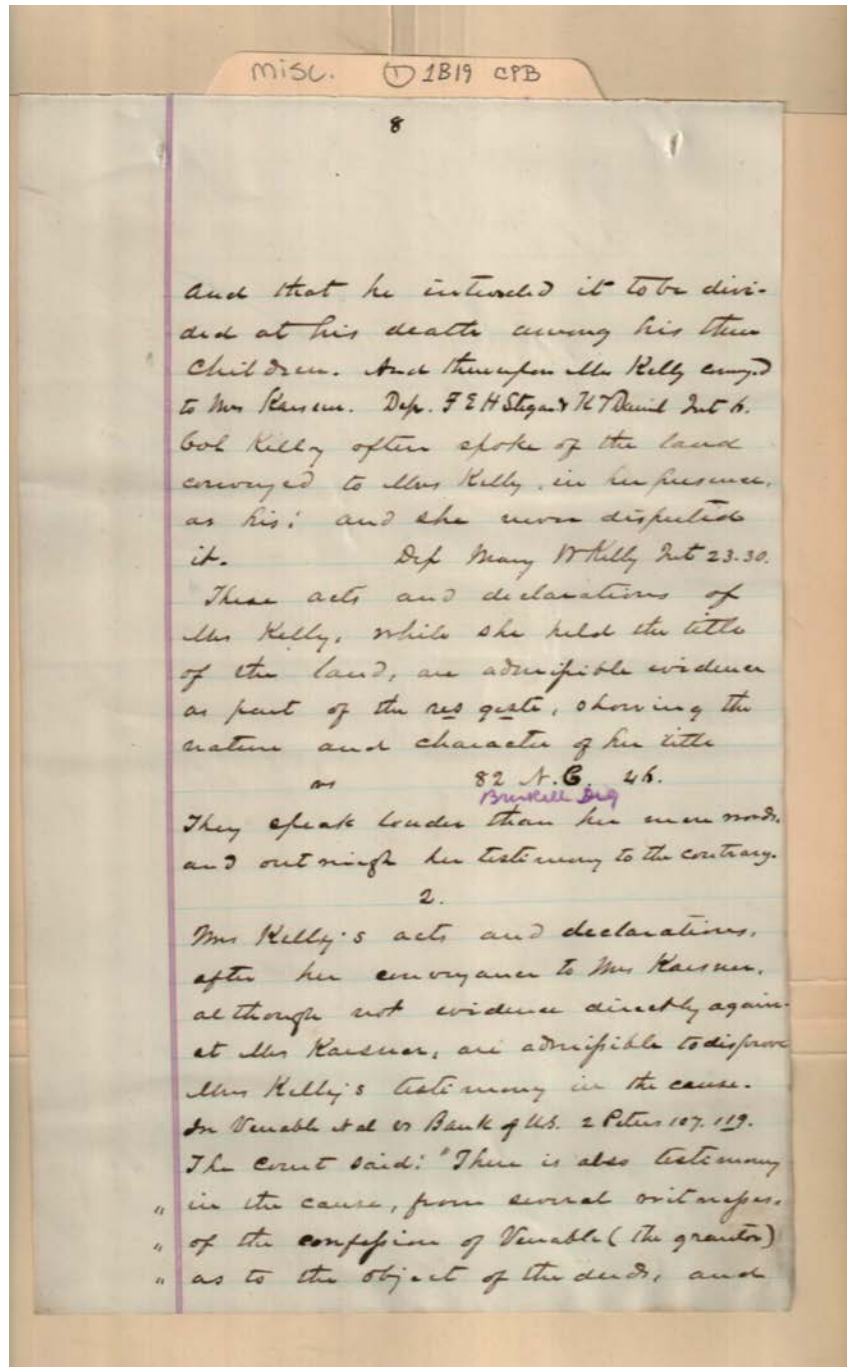 misc. ① 1B19 CPB
8
And that he intended it to be divi-
ded at his death among his three
children. And thereupon Mrs Kelly conveyed
to Mrs Karsner. Dep. F E H Steger & Int 6.
Col Kelly often spoke of the land
conveyed to Mrs Kelly, in her presence,
as his: and she never disputed
it. Dep Mary W Kelly Int 23.30.
These acts and declarations of
Mrs Kelly, while she held the title
of the land, are admissible evidence
as part of the res geste, showing the
nature and character of her title
vs 82 N.C. 46.
Brickell Dig
They speak louder than her mere words,
and outweigh her testimony to the contrary.
2.
Mrs Kelly's acts and declarations,
after her conveyance to Mrs Karsner,
although not evidence directly again-
st Mrs Karsner, are admissible to disprove
Mrs Kelly's testimony in the cause.
In Venable et al vs Bank of U.S. 2 Peters 107. 119.
The court said: "There is also testimony
" in the cause, from several witnesses,
" of the confession of Venable (the grantor)
" as to the object of the deeds, and